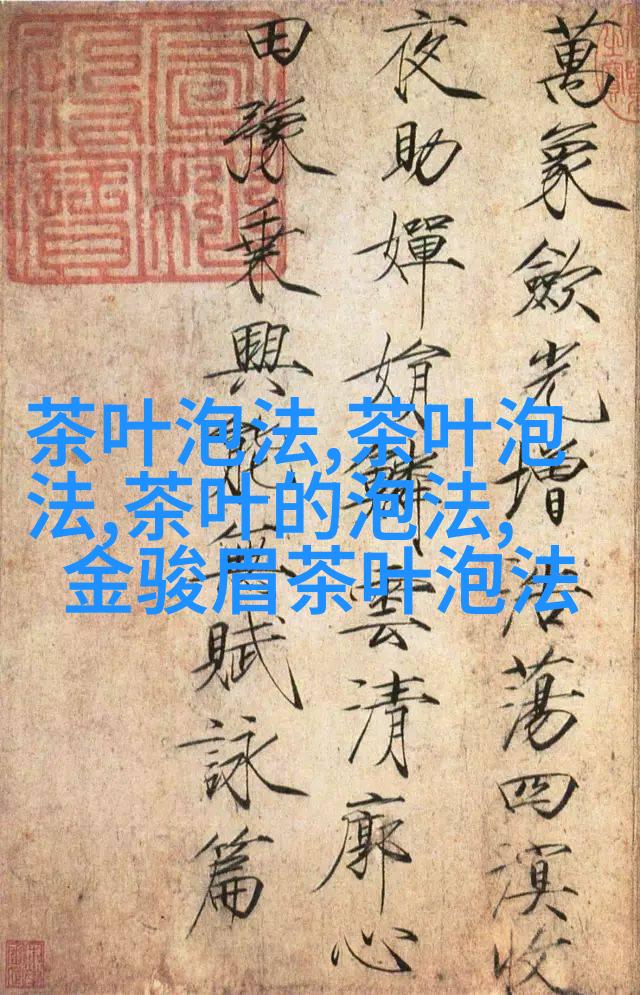 萬象歛光增浩蕩四溟收
夜助嬋娟鱗雲清廓心
田豫乗興能無賦詠篇
茶叶泡法,茶叶泡
法,茶叶的泡法,
金骏眉茶叶泡法